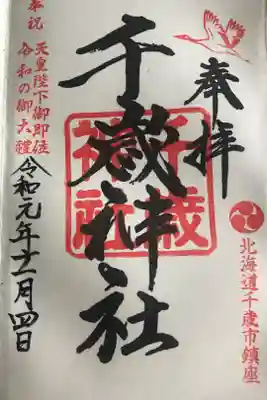 奉拝
北海道千歳市鎮座
千歳神社
千歳
神社
奉祝
天皇陛下御即位
令和の御大禮
令和元年十一月四日